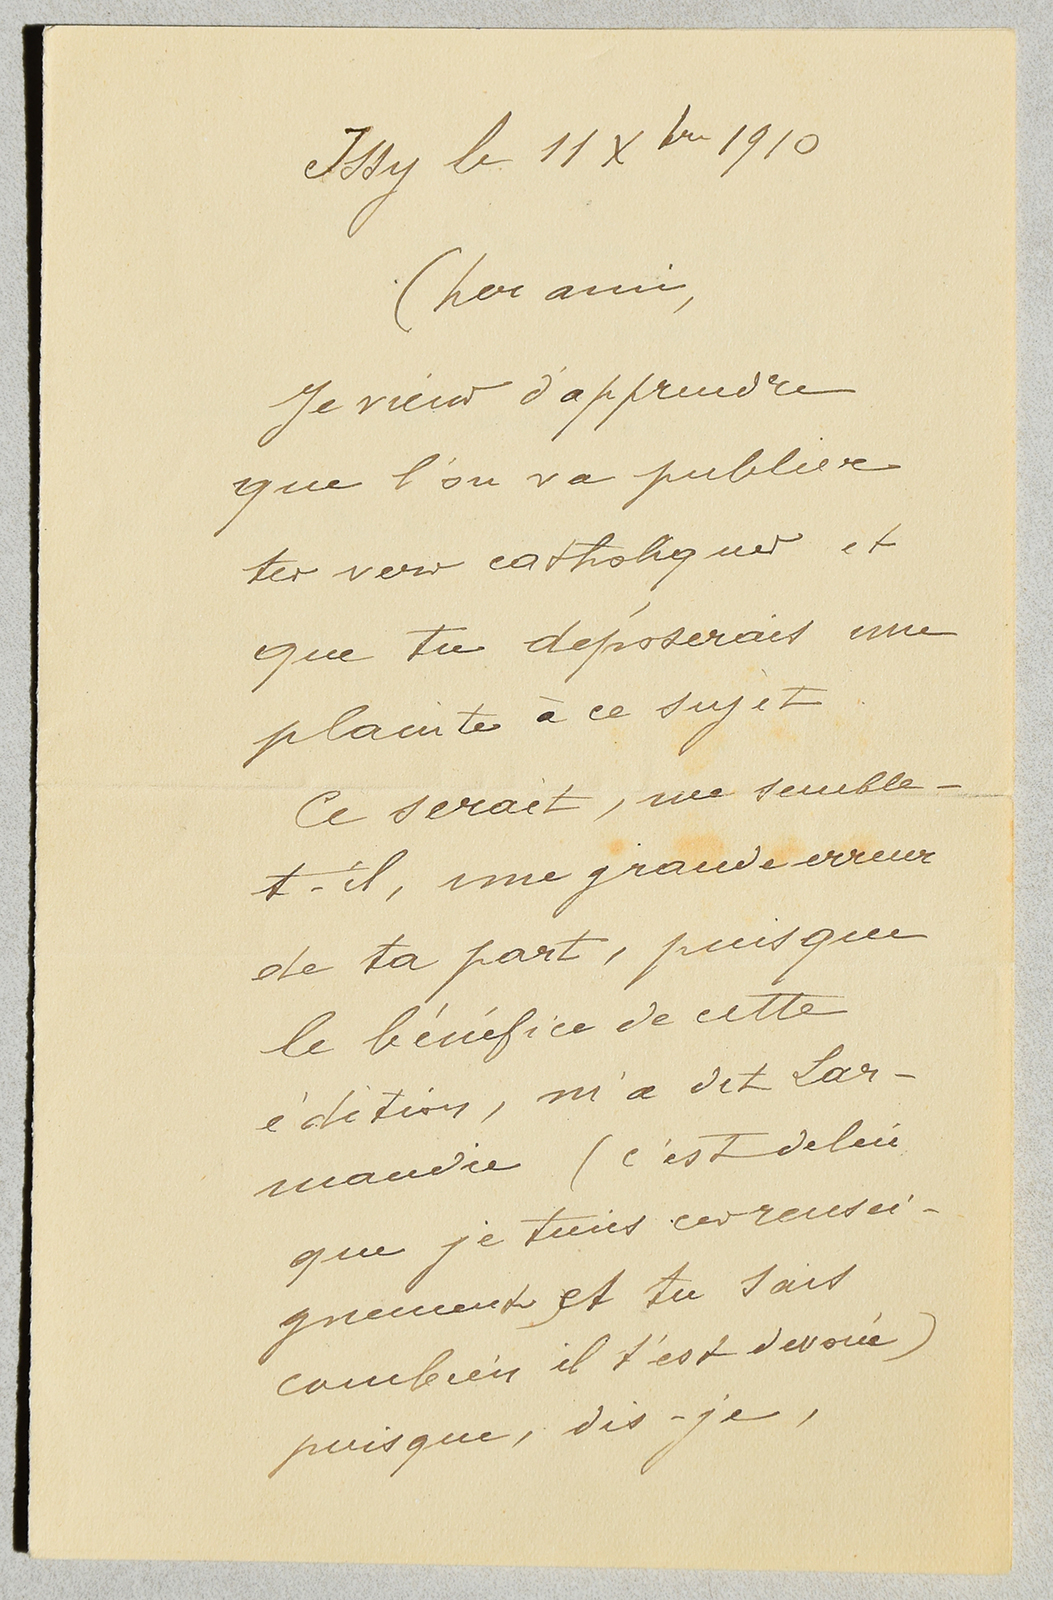 Issy le 11 Xbre 1910
Cher ami,
Je viens d'apprendre
que l'on va publier
tes vers catholiques et
que tu déposerais une
plainte à ce sujet
Ce serait, me semble-
t-il, une grande erreur
de ta part, puisque
le bénéfice de cette
édition, m'a dit Lar-
mandie (c'est de lui
que je tiens ces rensei-
gnements et tu sais
combien il t'est dévoué)
puisque, dis-je,